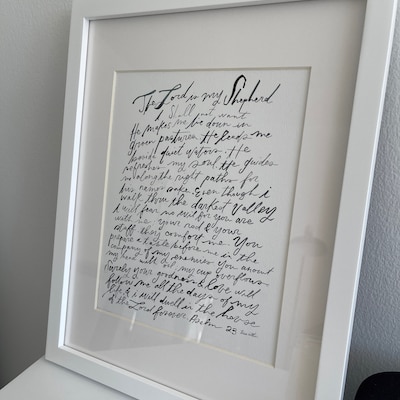 The Lord is my Shepherd
I Shall not want
He makes me lie down in
green pastures. He leads me
beside quiet waters. He
refreshes my soul. He guides
me along the right paths for
his name sake. Even though i
walk thru the darkest Valley
I will fear no evil for you are
with me your rod & your
staff they comfort me. You
prepare a table before me in the
company of my enemies you anoint
my head with oil, my cup overflows
Surely your goodness & love will
follow me all the days of my
life & i will dwell in the house
of the Lord forever. Psalm 23